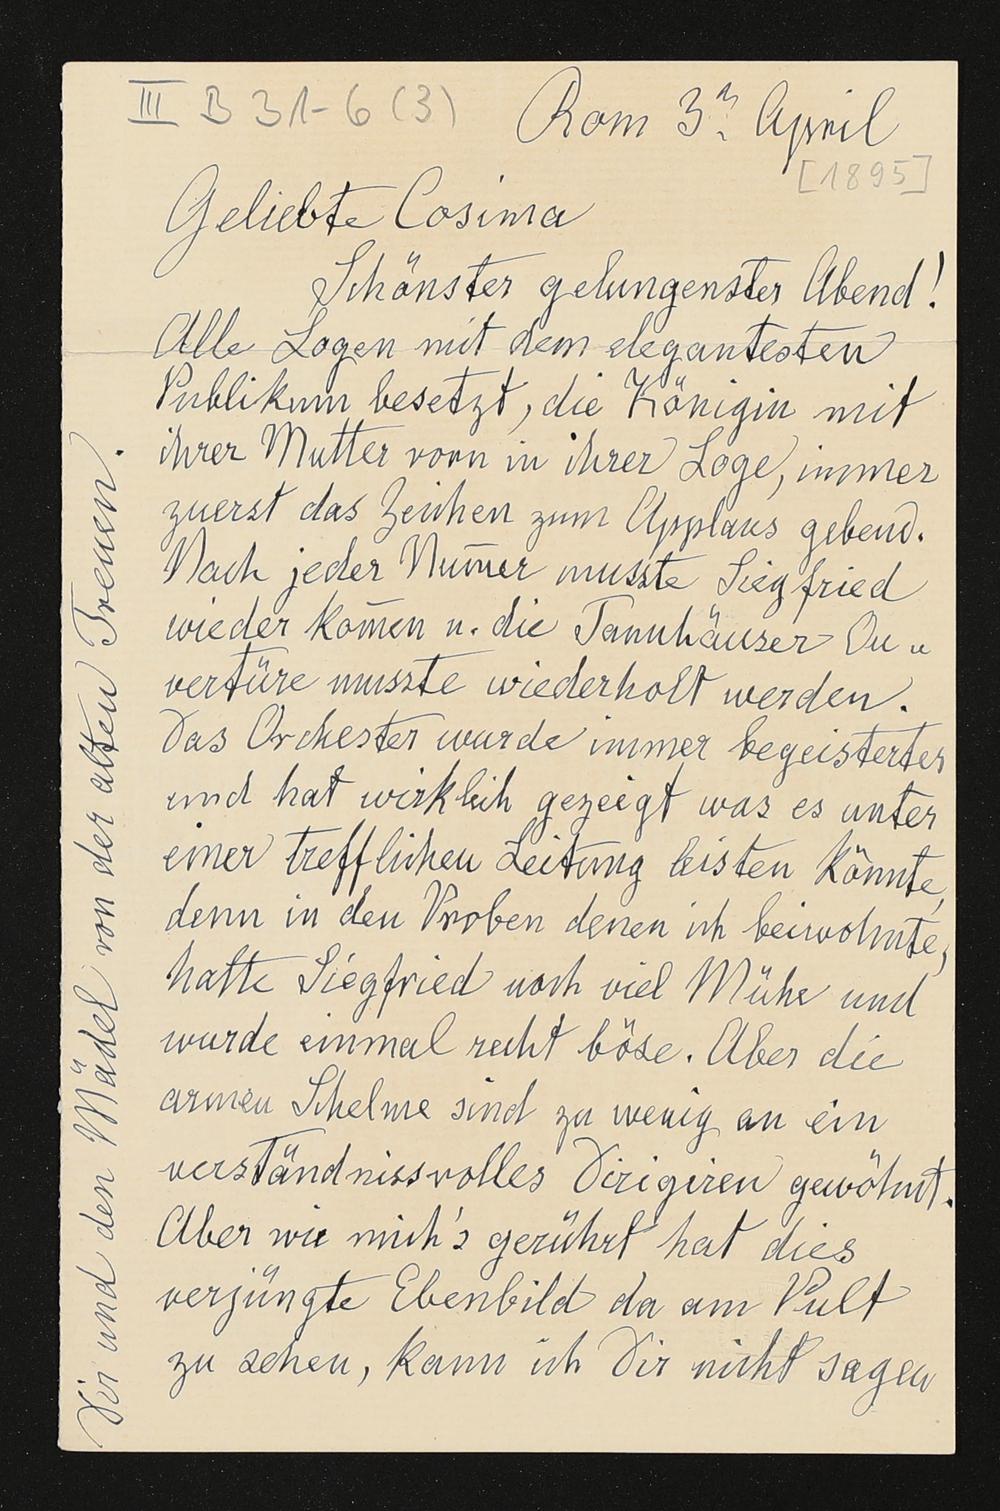 III B 31-6 (3)
Rom 3ten April
[1895]
Geliebte Cosima
Schönster gelungenster Abend!
Alle Logen mit dem elegantesten
Publikum besetzt, die Königin mit
ihrer Mutter vorn in ihrer Loge, immer
zuerst das Zeichen zum Applaus gebend.
Nach jeder Num̅er musste Siegfried
wieder kom̅en u. die Tannhäuser Ou„
vertüre musste wiederholt werden.
Das Orchester wurde immer begeisterter
und hat wirklich gezeigt was es unter
einer trefflichen Leitung leisten könnte,
denn in den Proben denen ich beiwohnte,
hatte Siegfried noch viel Mühe und
wurde einmal recht böse. Aber die
armen Schelme sind zu wenig an ein
verständnissvolles Dirigiren gewöhnt.
Aber wie mich's gerührt hat dies
verjüngte Ebenbild da am Pult
zu sehen, kann ich Dir nicht sagen
Dir und den Mädel von der alten Treuen.